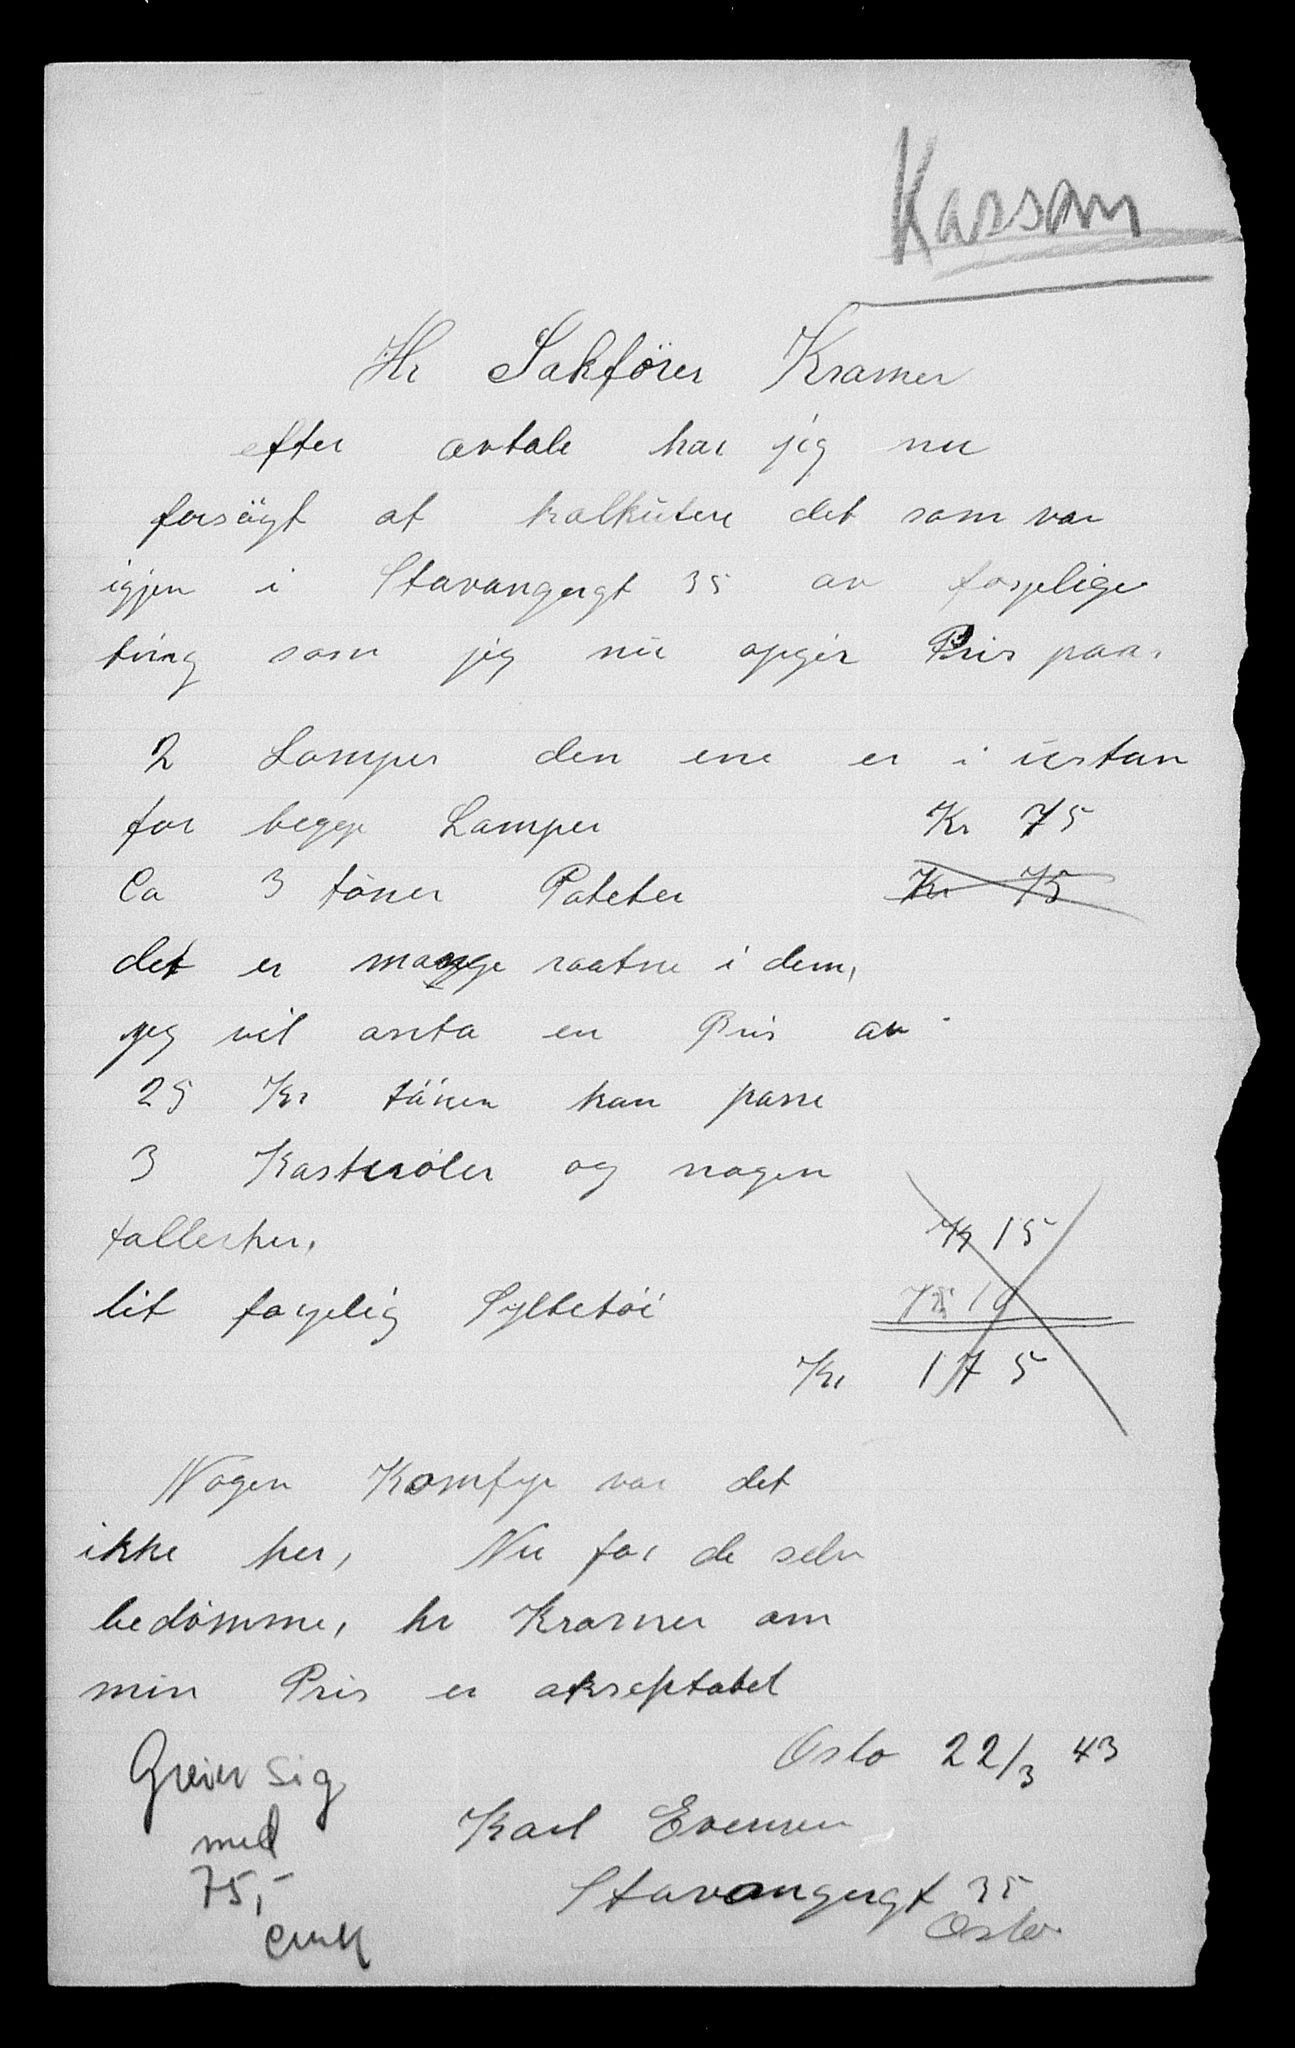 Karson
Hr Sakfører Kramer
efter avtale har jeg nu
forsögt at kalkulere det som var
igjen i Stavangergt 35 av forsjelige
ting som jeg nu opgir Pris paa.
2 Lamper den ene er i ustan
for begge Lamper Kr 75
Ca 3 töner Poteter Kr 75
det er mange raatne i dem,
jeg vil anta en Pris av
25 Kr tönen kan passe
3 Kasteroler og nogen
tallerker. Kr 15
lit forsjelig Syltetöi Kr 10
Kr 175
Nogen Komfyr var det
ikke her, Nu får de selv
bedömme, hr Kramer om
min Pris er akseptabel
Oslo 22/3 43
Greier sig
med
75,-
Karl Evensen
Stavangergt 35
Oslo